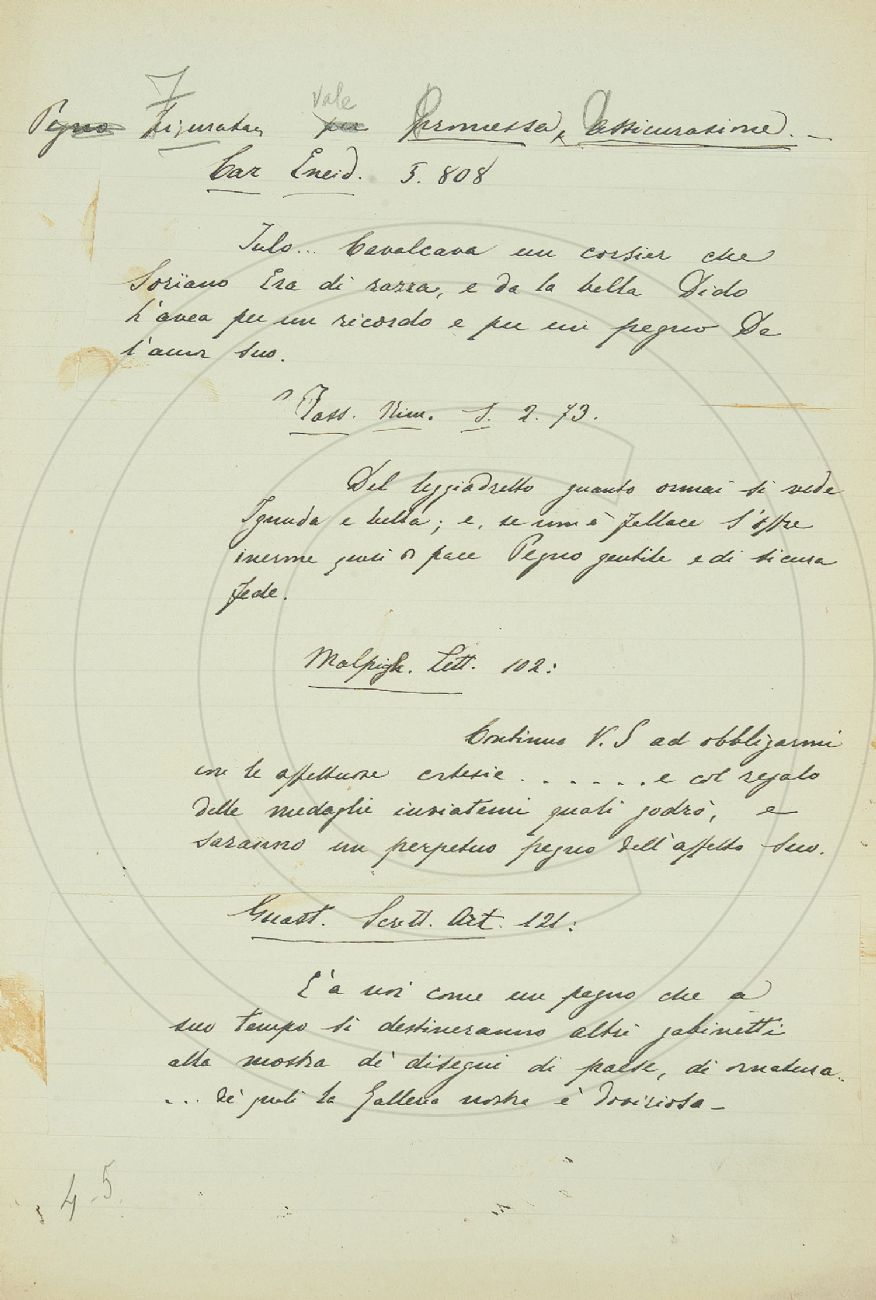 7
Vale
Pegno Figuratam per Promessa, Assicurazione. —
Car Eneid. 5. 808
Iulo... Cavalcava un corsier che
Soriano Era di razza, e da la bella Dido
L'avea per un ricordo e per un pegno De
l'amor suo.
Tass. Rim. S. 2. 73.
Del leggiadretto guanto ormai si vede
Ignuda e bella; e, se non è fallace S'offre
inerme quasi di pace Pegno gentile e di sicura
fede.
Malpigh. Lett. 102:
Continua V. S ad obbligarmi
con le affettuose cortesie . . . . . . e col regalo
delle medaglie inviatemi quali godrò, e
saranno un perpetuo pegno dell'affetto Suo.
Guast. Scritt. Art. 121:
È a noi come un pegno che a
suo tempo si destineranno altri gabinetti
alla mostra di disegni di paese, di ornatura..
... de' quali la Galleria nostra è doviziosa —
45